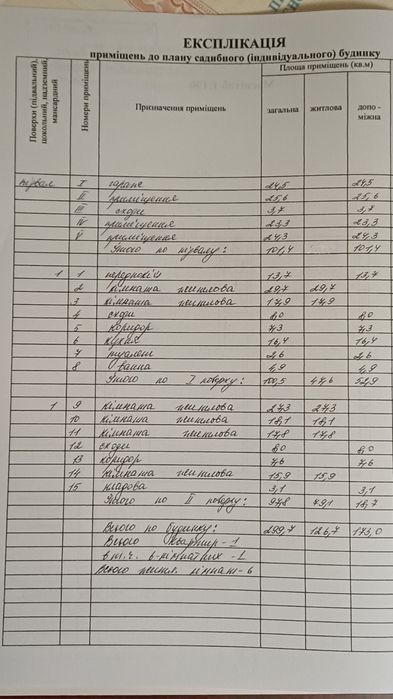 ЕКСПЛІКАЦІЯ
приміщень до плану садибного (індивідуального) будинку
Поверхи (підвальний), цокольний, надземний, мансардний
Номери приміщень
Призначення приміщень
Площа приміщень (кв.м)
загальна житлова допо - міжна
підвал I гараж 24,5 24,5
II приміщення 25,6 25,6
III сходи 3,7 3,7
IV приміщення 23,3 23,3
V приміщення 24,3 24,3
Усього по підвалу: 101,4 101,4
1 1 передпокій 13,7 13,7
2 кімната житлова 29,7 29,7
3 кімната житлова 17,9 17,9
4 сходи 8,0 8,0
5 коридор 7,3 7,3
6 кухня 16,4 16,4
7 туалет 2,6 2,6
8 ванна 4,9 4,9
Усього по I поверху: 100,5 47,6 52,9
1 9 кімната житлова 27,3 27,3
10 кімната житлова 18,1 18,1
11 кімната житлова 17,8 17,8
12 сходи 8,0 8,0
13 коридор 7,6 7,6
14 кімната житлова 15,9 15,9
15 кладова 3,1 3,1
Усього по II поверху: 97,8 79,1 18,7
Всього по будинку: 299,7 126,7 173,0
Всього квартир - 1
в т.ч. 6-кімнатних - 1
Всього житл. кімнат - 6